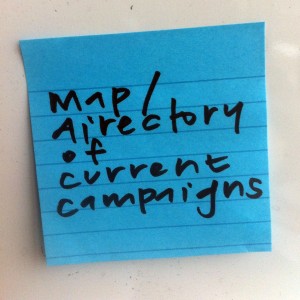 map/
directory
of
current
campaigns